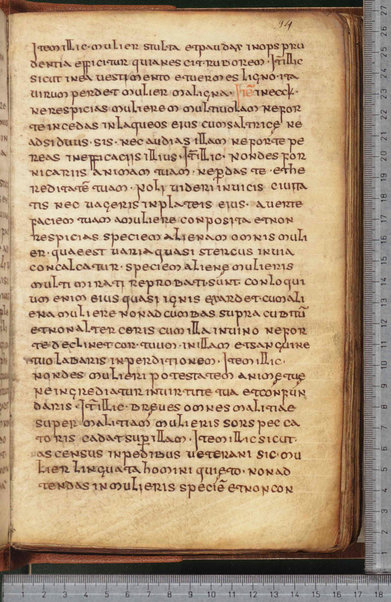 94
Item illic · mulier stulta et paudax inops pru
dentia efficitur quia nescit rudorem · It illic
sicut inea vestimento et uermes ligno · ita
uirum perdet mulier maligna · Itē in eccƚ ·
ne respicias mulierem multiuolam ne for
te incedas in laqueos eius cum saltrice ne
adsiduus · sis · nec audias illam ne forte pe
reas in efficaciis illius · It illic · non des for
nicariis animam tuam · ne perdas te · et he
reditatē tuam · Noli uideri in uicis ciuita
tis nec uageris in plateis eius · auerte
faciem tuam a muliere composita et non
respicias speciem alienam omnis muli
er · quae est uaria quasi stercus in uia
concalcatur · speciem aliene mulieris
multi mirati reprobati sunt conloqui
um enim eius quasi ignis exardet · cum ali
ena muliere non ad cumbas supra cubitū
et non alterceris cum illa in uino ne for
te declinet cor tuum in illam et sanguine
tuo labaris in perditionem · Item illic ·
non des mulieri potestatem anime tue
ne ingrediatur in uirtute tua et confun
daris · It illic · breues omnes malitiae
super malitiam mulieris sors pecca
toris cadat super illam · Item illic sicut ·
ascensus in pedibus ueterani sic mu
lier linguata homini quieto · non ad
tendas in mulieris speciē et non con